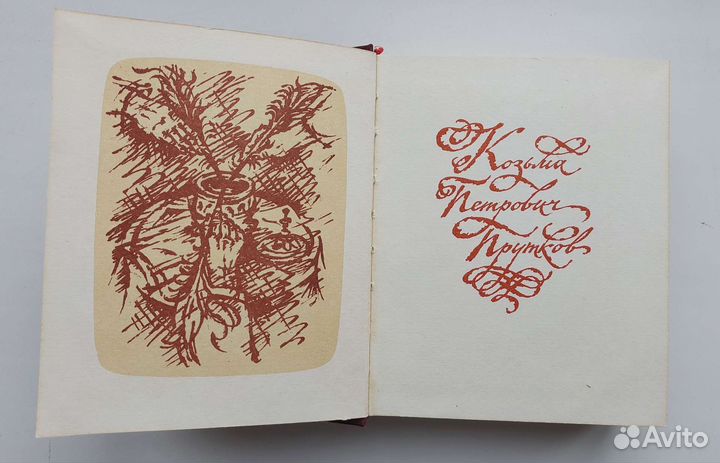 Козьма
Петрович
Прутков
Avito